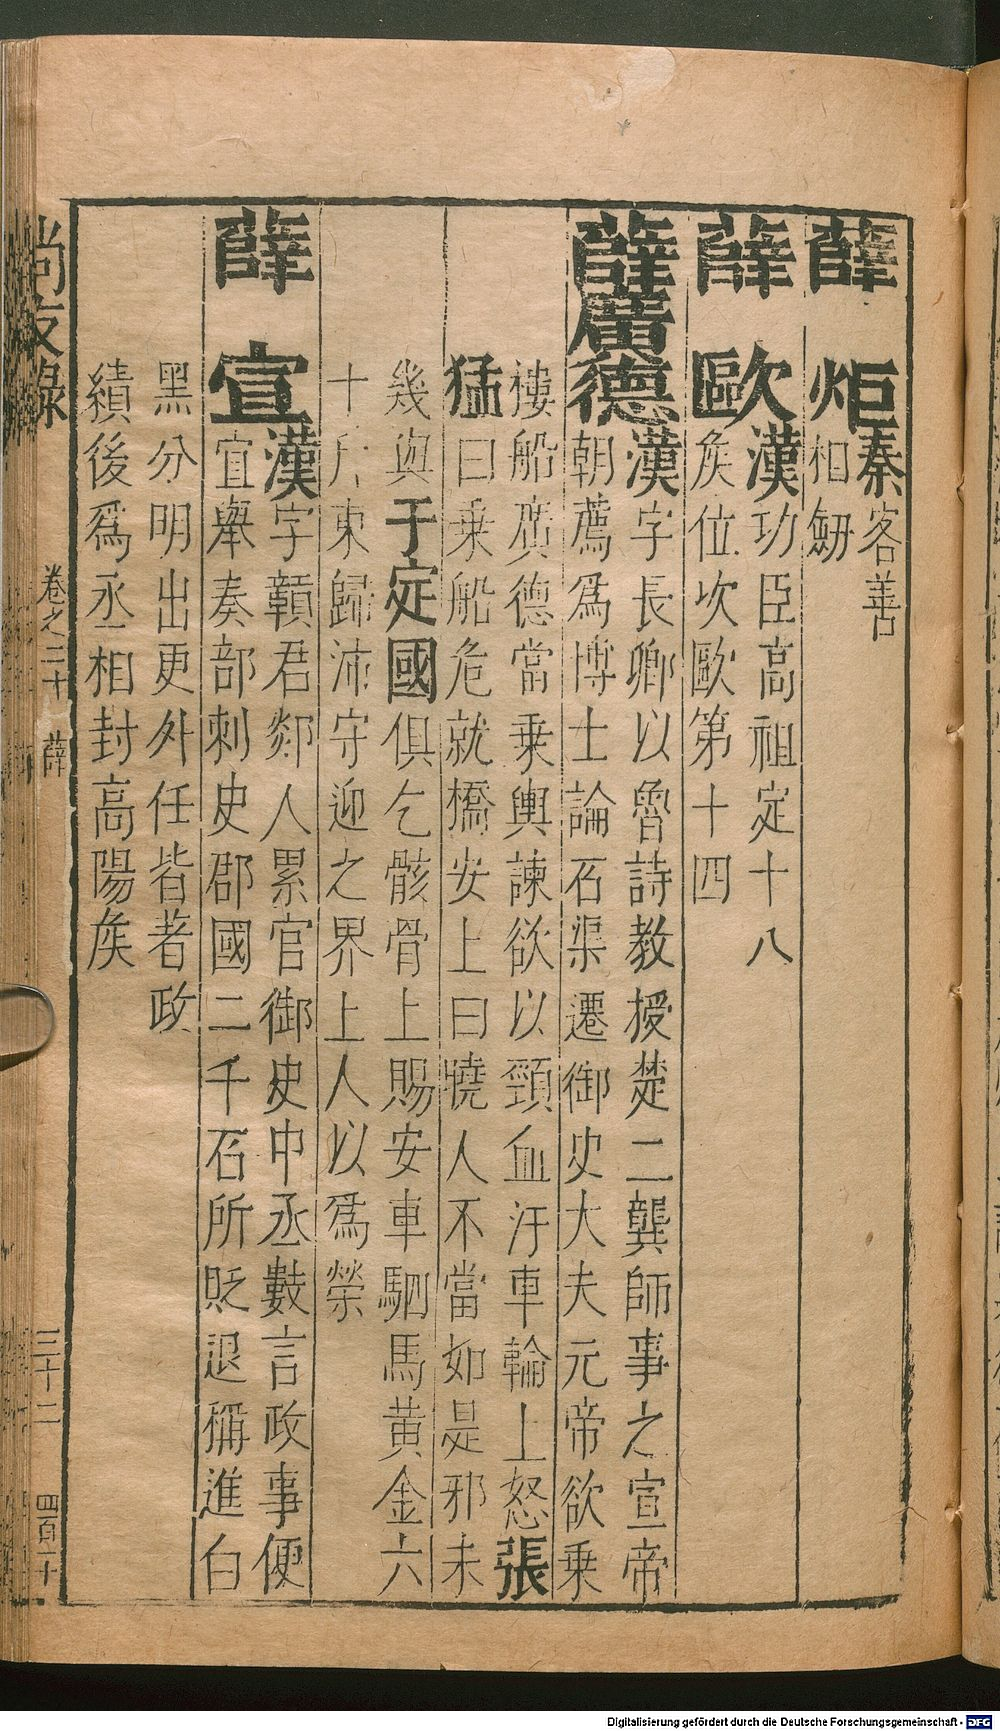 薛炬秦客善
相劒
薛歐漢功臣高祖定十八
矦位次歐第十四
薛廣德漢字長卿以魯詩教授楚二龔師事之宣帝
朝薦爲博士論石渠遷御史大夫元帝欲乗
樓船廣德當乗輿諫欲以頸血汙車輪上怒張
猛曰乗船危就橋安上曰曉人不當如是邪未
幾與于定國俱乞骸骨上賜安車駟馬黄金六
十斤東歸沛守迎之界上人以爲榮
薛宣漢字贛君郯人累官御史中丞數言政事便
宜舉奏部刺史郡國二千石所貶退稱進白
黑分明出更外任皆著政
績後爲丞相封高陽矦
尚友錄 卷之二十 薛 三十二 四百二十
Digitalisierung gefördert durch die Deutsche Forschungsgemeinschaft - DFG